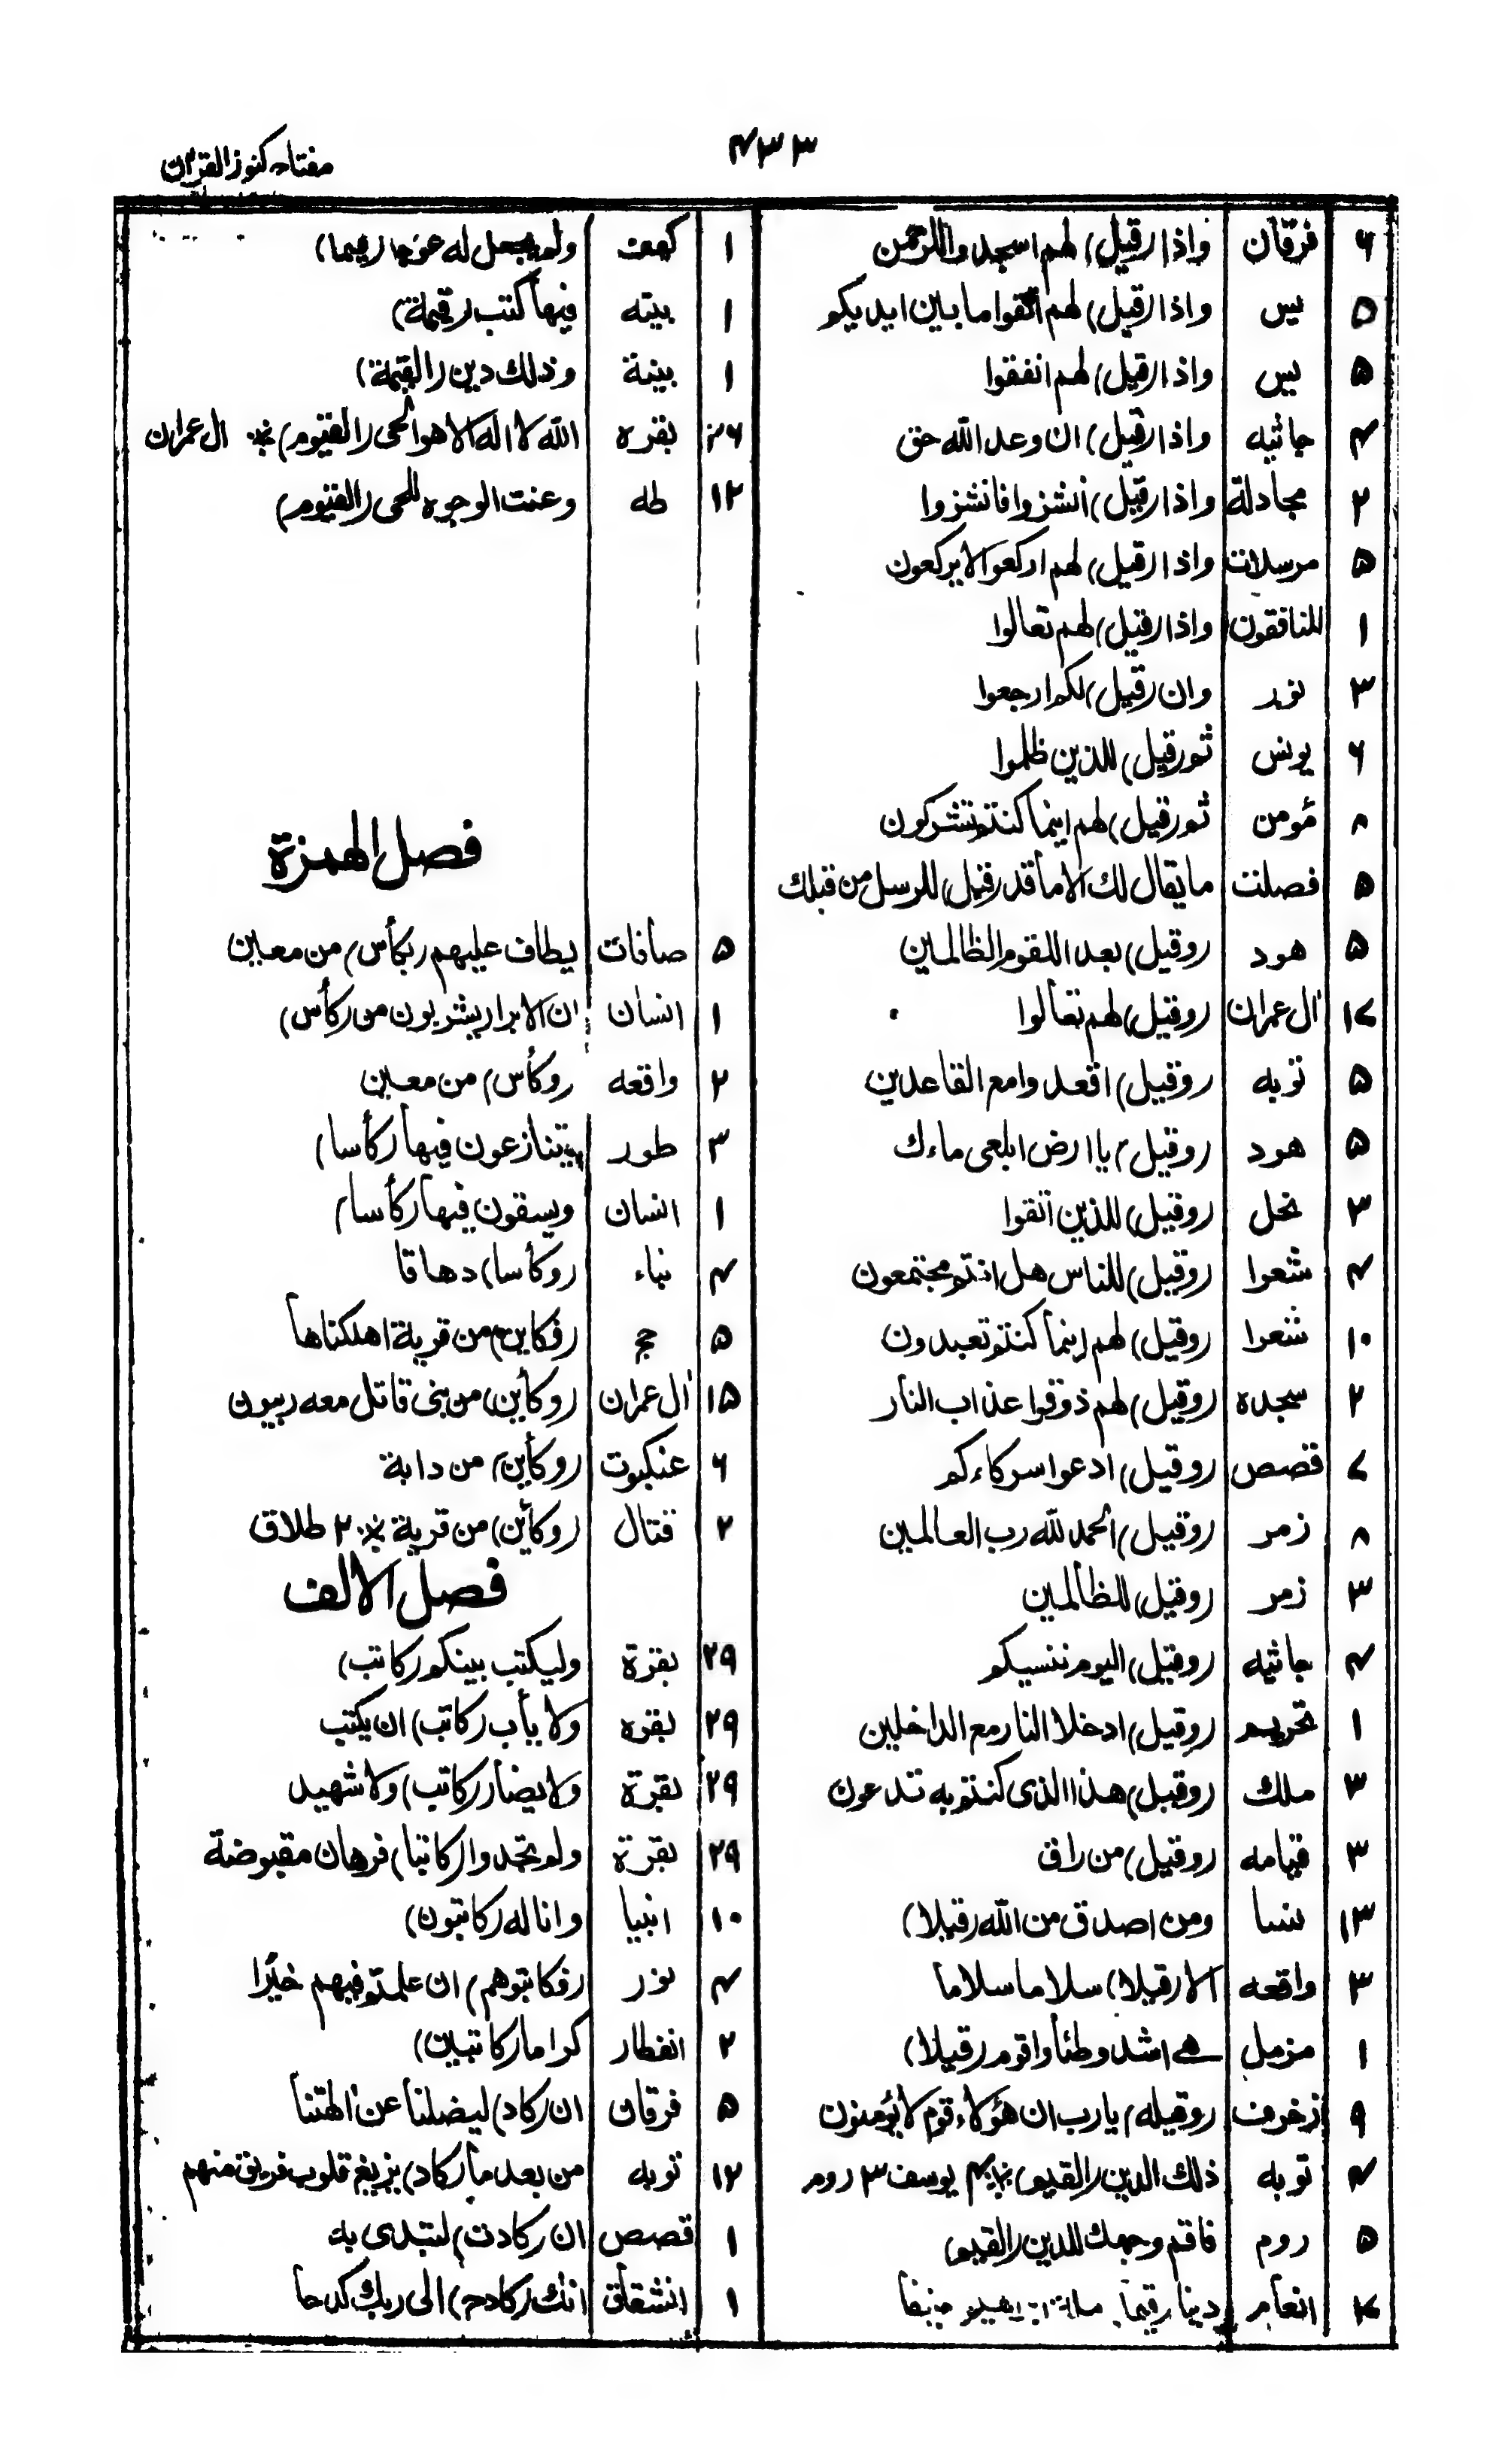 ۴۳۳
مفتاح کنوز القرآن
۶ فرقان واذا (قیل) لهم اسجدوا للرحمن
۵ یس واذا (قیل) لهم اتقوا ما بین ایدیکم
۵ یس واذا (قیل) لهم انفقوا
۴ جاثیه واذا (قیل) ان وعد الله حق
۲ مجادلة واذا (قیل) انشزوا فانشزوا
۵ مرسلات واذا (قیل) لهم ارکعوا لا یرکعون
۱ المنافقون واذا (قیل) لهم تعالوا
۳ نور وان (قیل) لکم ارجعوا
۶ یونس ثم (قیل) للذین ظلموا
۸ مؤمن ثم (قیل) لهم اینما کنتم تشرکون
۵ فصلت ما یقال لك الا ما قد (قیل) للرسل من قبلك
۵ هود (وقیل) بعدا للقوم الظالمین
۱۷ آل عمران (وقیل) لهم تعالوا
۵ توبه (وقیل) اقعدوا مع القاعدین
۵ هود (وقیل) یا ارض ابلعی ماءك
۳ نحل (وقیل) للذین اتقوا
۴ شعرا (وقیل) للناس هل انتم مجتمعون
۱۰ شعرا (وقیل) لهم اینما کنتم تعبدون
۲ سجده (وقیل) لهم ذوقوا عذاب النار
۷ قصص (وقیل) ادعوا سرکاءکم
۸ زمر (وقیل) الحمد لله رب العالمین
۳ زمر (وقیل) للظالمین
۴ جاثیه (وقیل) الیوم ننسیکم
۱ تحریم (وقیل) ادخلا النار مع الداخلین
۳ ملك (وقیل) هذا الذی کنتم به تدعون
۳ قیامه (وقیل) من راق
۱۳ نسا ومن اصدق من الله (قیلا)
۳ واقعه الا (قیلا) سلاما سلاما
۱ مزمل هی اشد وطئا واقوم (قیلا)
۹ زخرف (وقیله) یا رب ان هؤلاء قوم لا یؤمنون
۴ توبه ذلك الدین (القیم) ۴ یوسف ۳ روم
۵ روم فاقم وجهك للدین (القیم)
۷ انعام دینا (قیما) ملة ابراهیم حنیفا
۱ کهف ولم یجعل له عوجا (قیما)
۱ بینه فیها کتب (قیمة)
۱ بینة وذلك دین (القیمة)
۲۶ بقره الله لا اله الا هو الحی (القیوم) آل عمران
۱۲ طه وعنت الوجوه للحی (القیوم)
فصل الهمزة
۵ صافات یطاف علیهم (بکأس) من معین
۱ انسان ان الابرار یشربون من (کأس)
۲ واقعه (وکأس) من معین
۳ طور یتنازعون فیها (کأسا)
۱ انسان ویسقون فیها (کأسا)
۴ نباء (وکأسا) دهاقا
۵ حج (فکاین) من قریة اهلکناها
۱۵ آل عمران (وکأین) من نبی قاتل معه ربیون
۶ عنکبوت (وکأین) من دابة
۲ قتال (وکأین) من قریة ۲ طلاق
فصل الالف
۲۹ بقرة ولیکتب بینکم (کاتب)
۲۹ بقره ولا یأب (کاتب) ان یکتب
۲۹ بقرة ولا یضار (کاتب) ولا شهید
۲۹ بقرة ولم تجدوا (کاتبا) فرهان مقبوضة
۱۰ انبیا وانا له (کاتبون)
۴ نور (فکاتبوهم) ان علمتم فیهم خیرا
۲ انفطار کراما (کاتبین)
۵ فرقان ان (کاد) لیضلنا عن آلهتنا
۱۲ توبه من بعد ما (کاد) یزیغ قلوب فریق منهم
۱ قصص ان (کادت) لتبدی به
۱ انشقاق انك (کادح) الی ربك کدحا